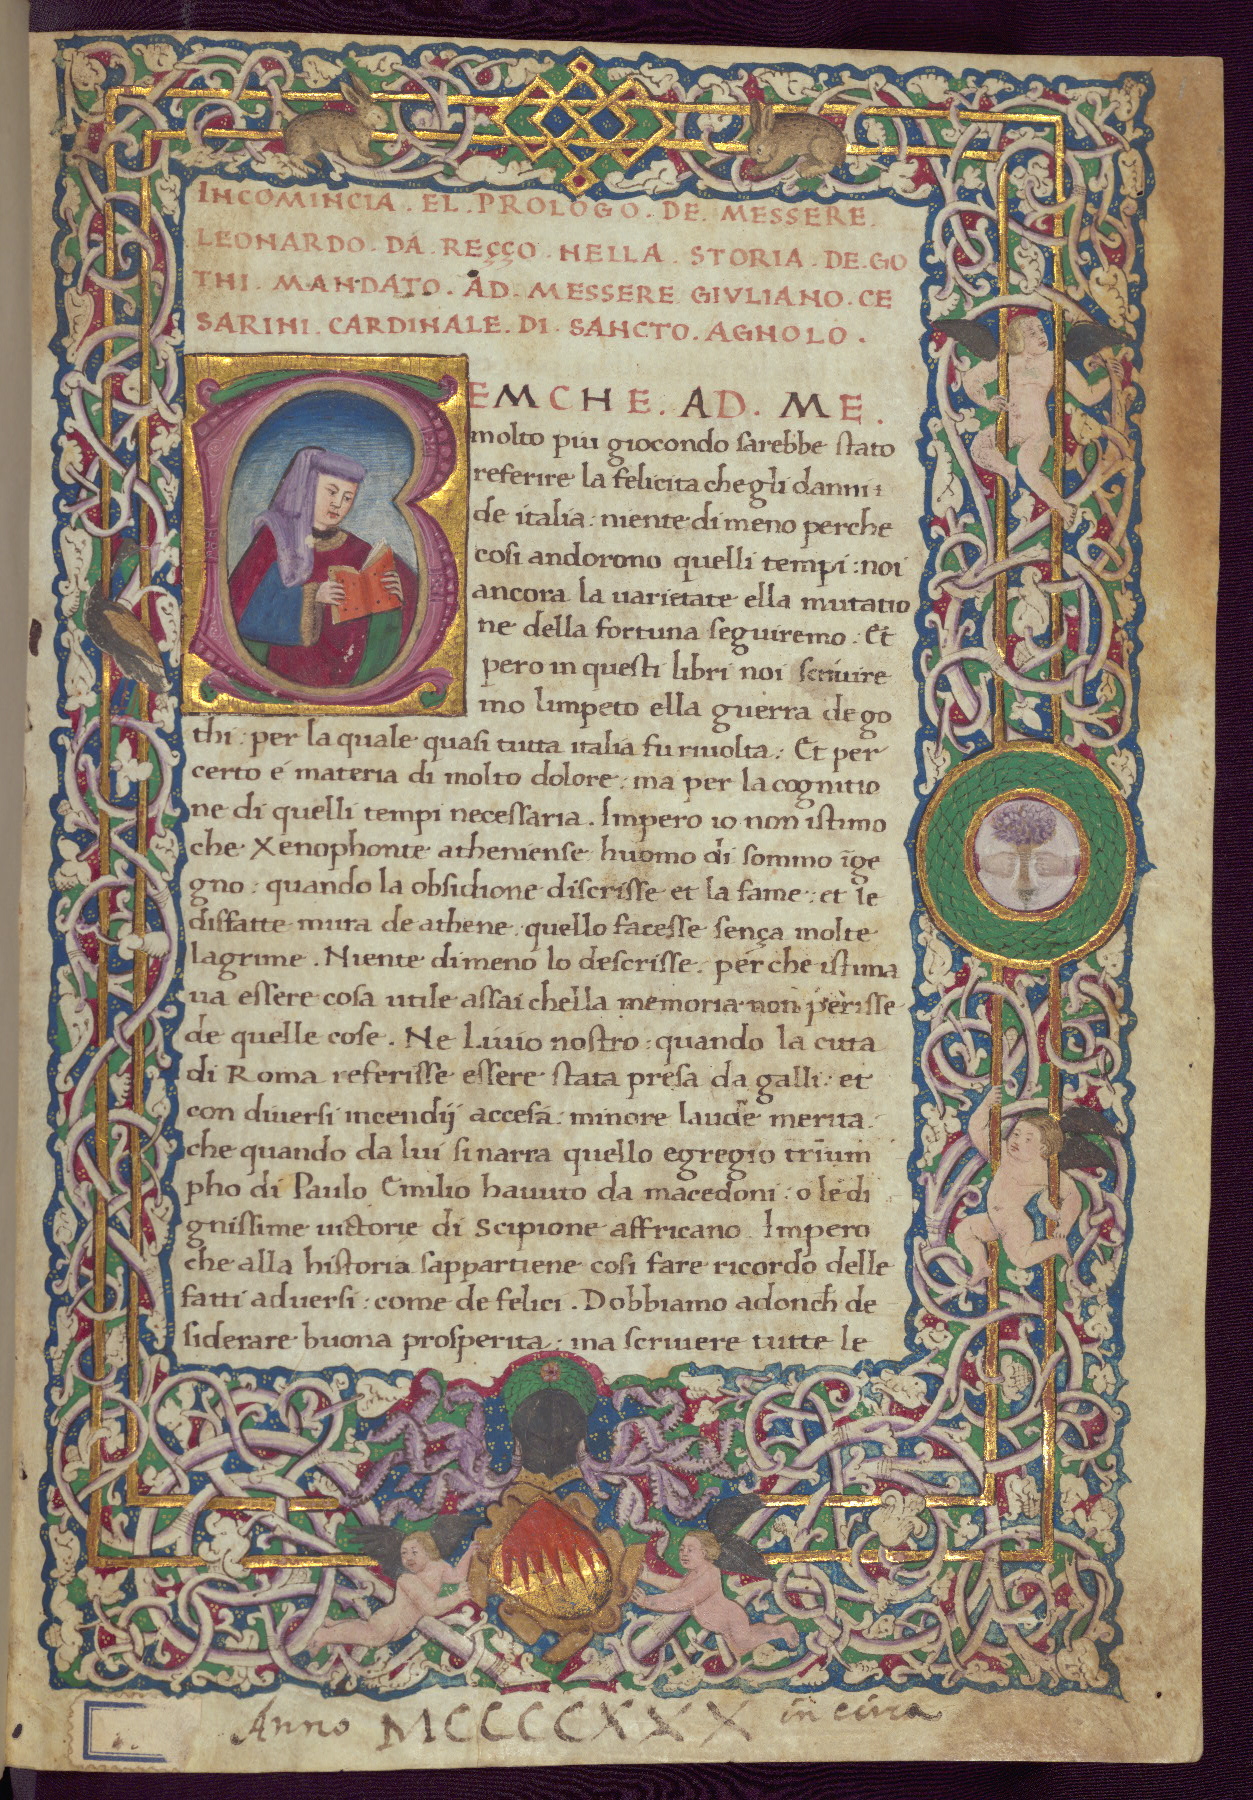 INCOMINCIA . EL . PROLOGO . DE . MESSERE .
LEONARDO . DA . REÇÇO . NELLA . STORIA . DE . GO
THI . MANDATO . AD . MESSERE GIVLIANO . CE
SARINI . CARDINALE . DI . SANCTO . AGNOLO .
BEMCHE . AD . ME .
molto piu giocondo sarebbe stato
referire la felicita che gli danni
de italia : niente di meno perche
cosi andorono quelli tempi : noi
ancora la uarietate ella mutatio
ne della fortuna seguiremo : Et
pero in questi libri noi scriuire
mo limpeto ella guerra de go
thi : per la quale quasi tutta italia fu riuolta : Et per
certo é materia di molto dolore : ma per la cognitio
ne di quelli tempi necessaria . Impero io non istimo
che Xenophonte atheniense huomo di sommo īge
gno : quando la obsidione discrisse et la fame : et le
disfatte mura de athene : quello facesse sença molte
lagrime . Niente di meno lo descrisse : perche istima
ua essere cosa utile assai chella memoria non perisse
de quelle cose . Ne Liuio nostro : quando la citta
di Roma referisse essere stata presa da galli : et
con diuersi incendij accesa : minore laude merita :
che quando da lui si narra quello egregio trium
pho di Paulo Emilio hauuto da macedoni : o le di
gnissime uictorie di Scipione affricano . Impero
che alla historia sappartiene cosi fare ricordo delle
fatti aduersi : come de felici . Dobbiamo adonch̄ de
siderare buona prosperita : ma scriuere tutte le
Anno MCCCCXXX in circa